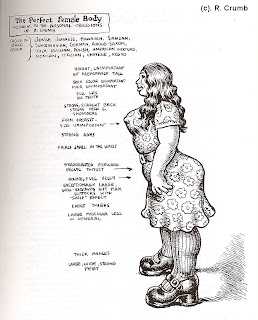 (c). R. Crumb
The Perfect Female Body
ACCORDING TO THE PERSONAL OBSESSIONS
OF R. CRUMB
JEWISH, JAPANESE, HAWAIIAN, SAMOAN,
SCANDINAVIAN, GERMAN, ANGLO-SAXON,
IRISH, SICILIAN, POLISH, AMERICAN MIXTURE,
ITALIAN,
HEIGHT, UNIMPORTANT
BUT PREFERABLY TALL
SKIN COLOR UNIMPORTANT
HAIR UNIMPORTANT
FULL LIPS
BIG TEETH
STRONG, STRAIGHT BACK
SHOULDERS
FIRM BREASTS...
SIZE UNIMPORTANT
STRONG ARMS
FAIRLY SMALL IN THE WAIST
EXAGGERATED FORWARD
PELVIC THRUST
ROUND, FULL BELLY
EXCEPTIONALLY LARGE,
BUTTOCKS WITH
"SHELF" EFFECT
LARGE THIGHS
LARGE MUSCULAR LEGS
IN GENERAL
THICK ANKLES
LARGE, WIDE, STRONG
FEET